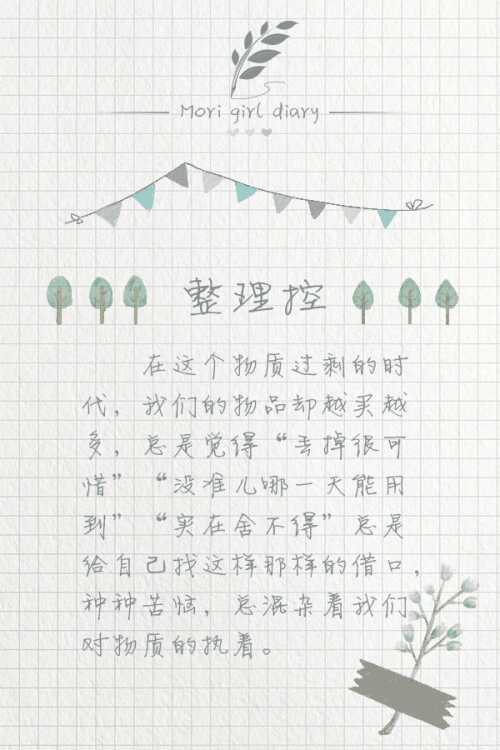 Mori girl diary
整理控
在这个物质过剩的时
代，我们的物品却越买越
多，总是觉得“丢掉很可
惜”“没准儿哪一天能用
到”“实在舍不得”总是
给自己找这样那样的借口，
种种苦恼，总混杂着我们
对物质的执着。